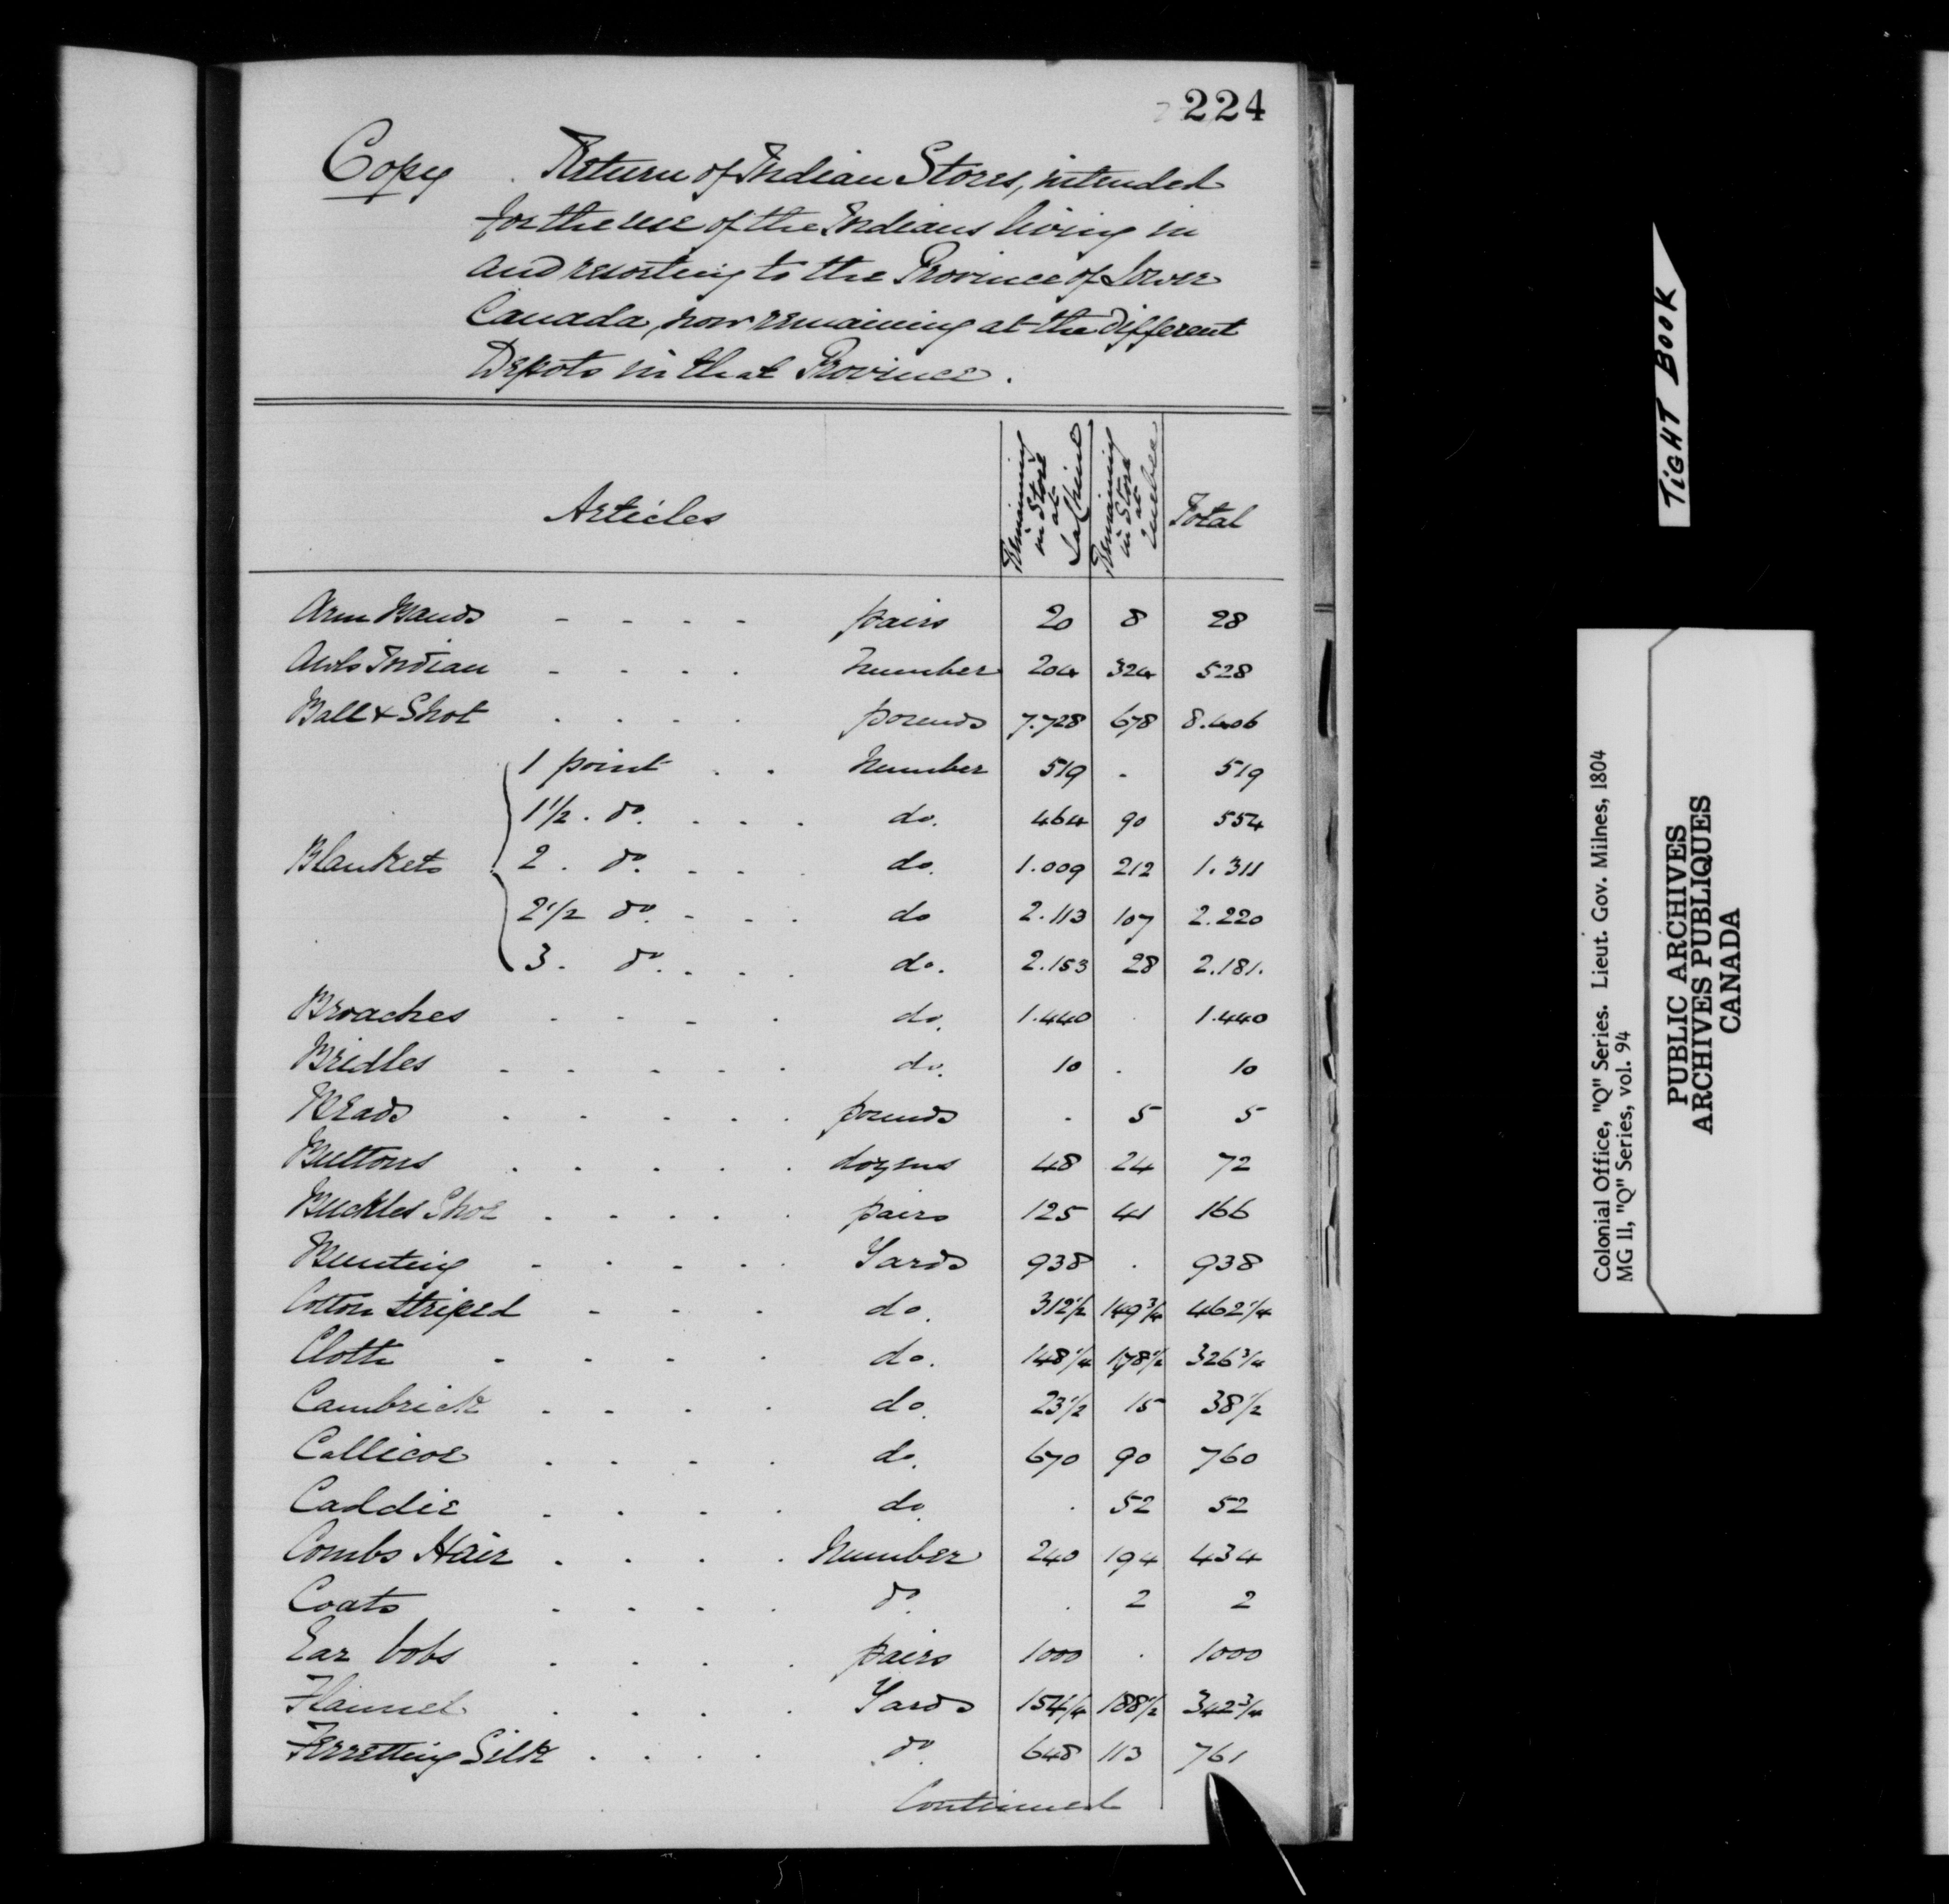 224
Copy . Return of Indian Stores, intended
for the use of the Indians living in
and resorting to the Province of Lower
Canada, now remaining at the different
Depots in that Province.
Articles Remaining in Store at La Chine Remaining in Store at Quebec Total
Arm Bands - - - - pairs 20 8 28
Awls Indian - - . . Number 204 324 528
Ball & Shot . . . . pounds 7.728 678 8.406
1 point . . Number 519 - 519
1 1/2 . do. . . . do. 464 90 554
Blankets 2 . do. - - . do. 1.009 212 1.311
2 1/2 do. - - . do 2.113 107 2.220
3 . do. . . . do. 2.153 28 2.181.
Broaches . - - . do. 1.440 . 1.440
Bridles . . . . . do. 10 . 10
Beads . . . . . pounds . 5 5
Buttons . . . . . dozens 48 24 72
Buckles Shoe . . . . . pairs 125 41 166
Bunting - . . - . Yards 938 . 938
Cotton Striped - - . do. 312 1/2 149 3/4 462 1/4
Cloth - - - . do. 148 1/4 178 1/2 326 3/4
Cambrick . . . . do. 23 1/2 15 38 1/2
Callicoe . . . . do. 670 90 760
Caddie . . . . do. . 52 52
Combs Hair . . . . Number 240 194 434
Coats . . . . do. . 2 2
Ear bobs . . . . pairs 1000 . 1000
Flannel . . . . Yards 154 1/4 188 1/2 342 3/4
Ferretting Silk . . . . do. 648 113 761
Continued
TIGHT BOOK
Colonial Office, "Q" Series. Lieut. Gov. Milnes, 1804
MG 11, "Q" Series, vol. 94
PUBLIC ARCHIVES
ARCHIVES PUBLIQUES
CANADA